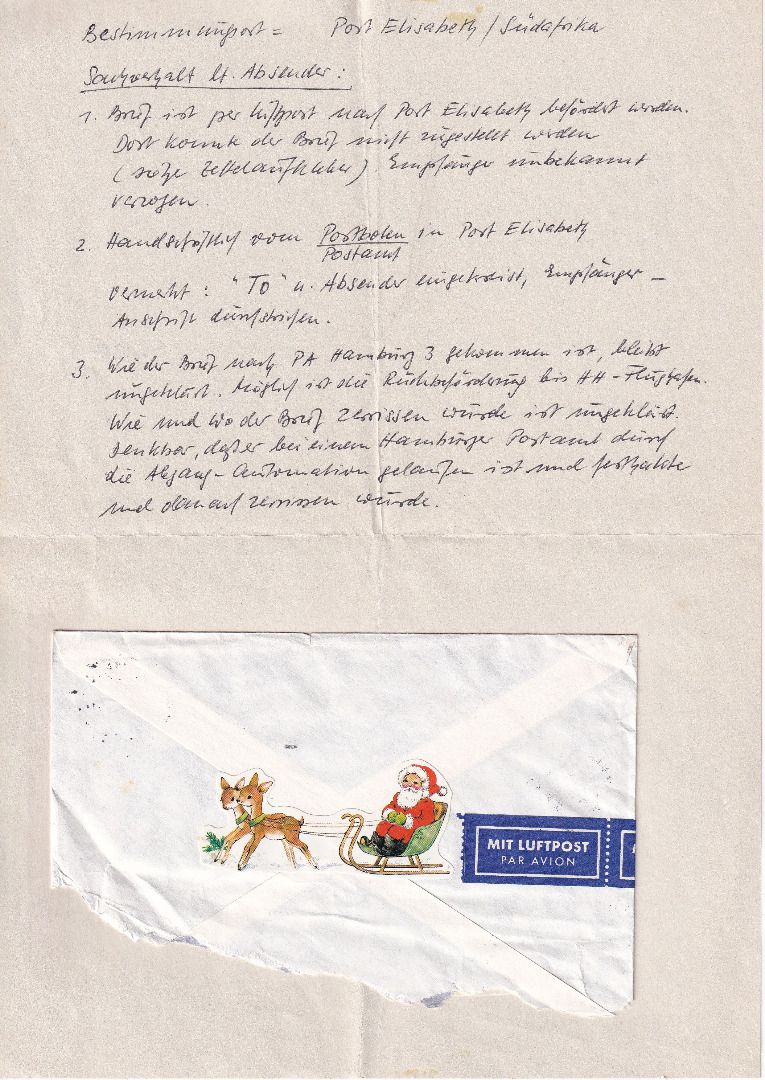 Bestimmungsort = Port Elisabeth / Südafrika
Sachverhalt lt. Absender:
1. Brief ist per Luftpost nach Port Elisabeth befördert worden.
Dort konnte der Brief nicht zugestellt werden
(siehe Zettelaufkleber). Empfänger unbekannt
verzogen.
2. Handschriftlich vom Postboten in Port Elisabeth
Postamt
vermerkt: "To" u. Absender eingekreist, Empfänger-
Anschrift durchstrichen.
3. Wie der Brief nach PA Hamburg 3 gekommen ist, bleibt
ungeklärt. Möglich ist die Rückbeförderung bis HH-Flughafen.
Wie und wo der Brief zerrissen wurde ist ungeklärt.
Denkbar, daß er bei einem Hamburger Postamt durch
die Abgang-Automation gelaufen ist und festhakte
und darauf zerrissen wurde.
MIT LUFTPOST
PAR AVION